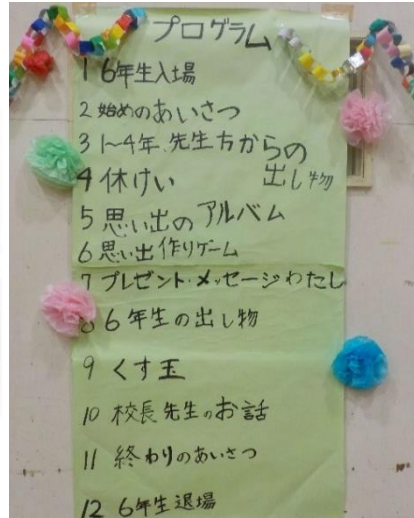 プログラム
1 6年生入場
2 始めのあいさつ
3 1~4年、先生方からの
出し物
4 休けい
5 思い出のアルバム
6 思い出作りゲーム
7 プレゼント・メッセージわたし
8 6年生の出し物
9 くす玉
10 校長先生のお話
11 終わりのあいさつ
12 6年生退場